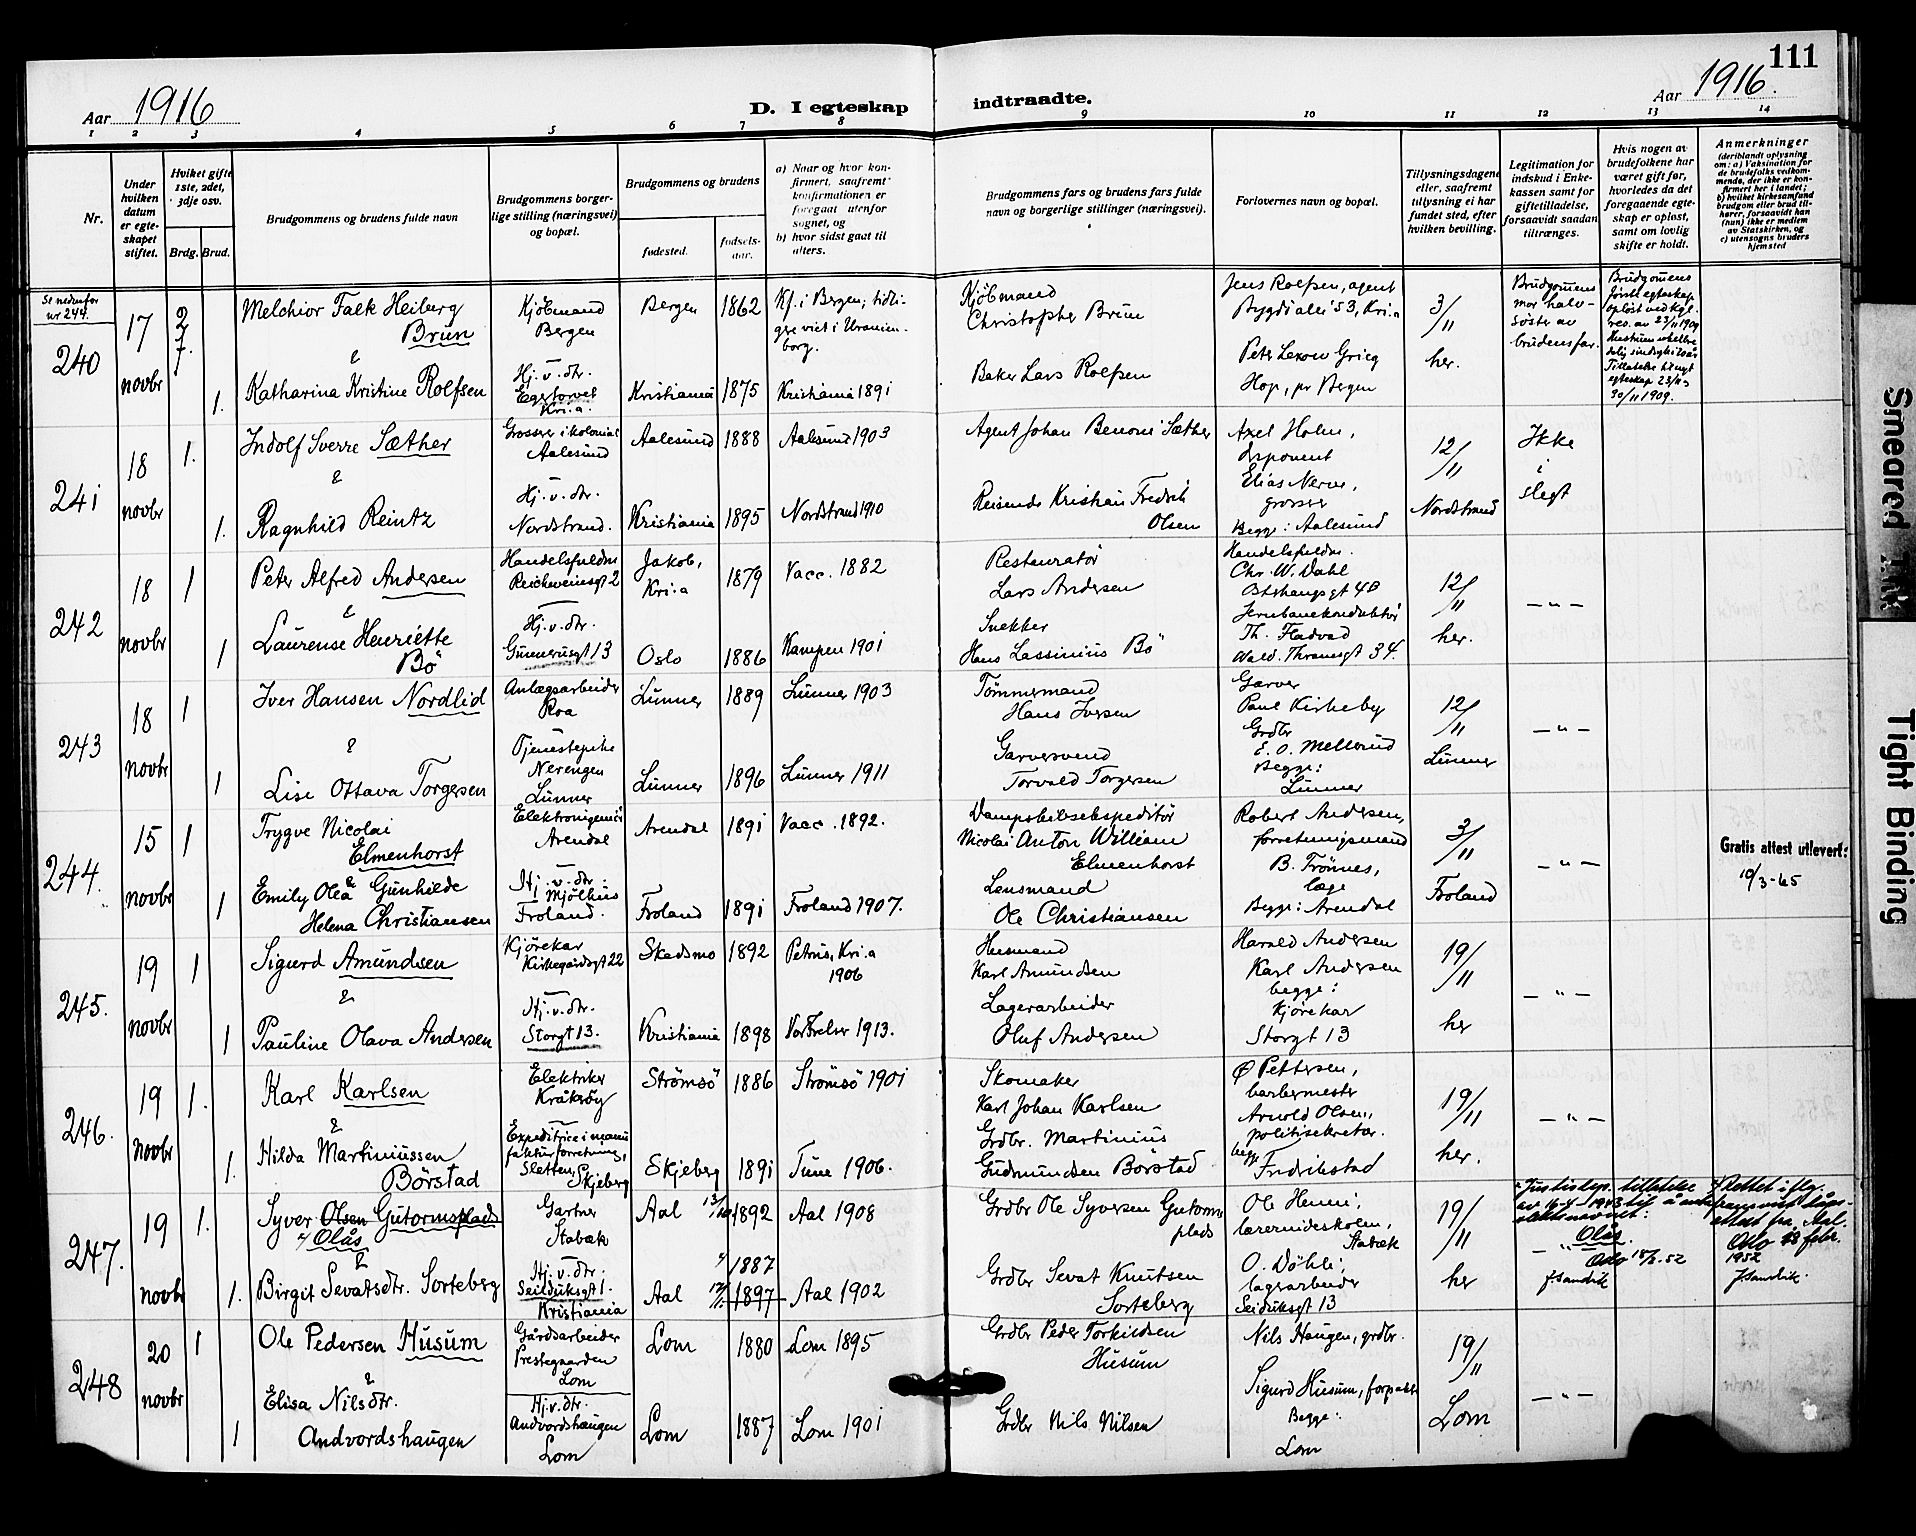 111
Aar 1916
D. I egteskap
indtraadte.
Aar 1916.
1 2 3 4 5 6 7 8 9 10 11 12 13 14
Nr.
Under hvilken datum er egteskapet stiftet.
Hviket gifte 1ste, 2det, 3dje osv.
Brdg. Brud.
Brudgommens og brudens fulde navn
Brudgommens borgerlige stilling (næringsvei) og bopæl.
Brudgommens og brudens
fødested.
fødselsaar.
a) Naar og hvor konfirmert, saafremt konfirmationen er foregaat utenfor sognet, og
b) hvor sidst gaat til alters.
Brudgommens fars og brudens fars fulde navn og borgerlige stillinger (næringsvei).
Forlovernes navn og bopæl.
Tillysningsdagene eller, saafremt tillysning ei har fundet sted, efter hvilken bevilling.
Legitimation for indskud i Enkekassen samt for giftetilladelse, forsaavidt saadan tiltrænges.
Hvis nogen av brudefolkene har været gift før, hvorledes da det foregaaende egteskap er opløst, samt om lovlig skifte er holdt.
Anmerkninger
(deriblandt oplysning om: a) Vaksination for de brudefolks vedkommende, der ikke er konfirmert her i landet; b) hvilket kirkesamfund brudgom eller brud tilhører, forsaavidt han (hun) ikke er medlem av Statskirken, og c) utensogns bruders hjemsted
Se nedenfor nr 244.
240
17 novbr
2
1.
Melchior Falk Heiberg
Brun
&
Katharina Kristine Rolfsen
Kjöbmand
Bergen
Hj. v. dtr.
Egertorvet
Kri.a.
Bergen 1862
Kristiania 1875
Kf. i Bergen; tidligere viet i Uranienborg.
Kristiania 1891
Kjöbmand
Christopher Brun
Baker Lars Rolfsen
Jens Rolfsen, agent
Bygdö alle 53, Kri.a
Peter Lexow Grieg
Hop, pr Bergen
3/11
her.
Brudgomens
mor halv-
söster av
brudens far.
Brudgomens
förste egteskap
oplöst ved kgl.
res. av 23/11 1909
30/11 1909.
241
18 novbr
1. 1.
Indolf Sverre Sæther
&
Ragnhild Reintz
Grosser i kolonial
Aalesund
Hj. v. dtr.
Nordstrand.
Aalesund 1888 Aalesund 1903
Kristiania 1895 Nordstrand 1910
Agent Johan Benoni Sæther
Reisende Kristian Fredrik
Olsen
Axel Holm,
disponent
Elias Nerve,
grosser
Begge: Aalesund
12/11
Nordstrand
Ikke
i
slegt
242
18 novbr
1 1
Peter Alfred Andersen
&
Laurense Henriette
Bö
Handelsfuldm
Reichweinsgt 2
Hj. v. dtr.
Gunerusgt 13
Jakob,
Kri.a
1879 Vacc. 1882
Oslo 1886 Kampen 1901
Restauratör
Lars Andersen
Snekker
Hans Lassinius Bö
Handelsfuldm.
Chr. W. Dahl
Ostehaugsgt 4B
Jernbanekonduktör
Th. Fladvad
Wald. Thranesgt 34.
12/11
her.
– " –
243
18 novbr
1 1
Iver Hansen Nordlid
&
Lise Ottava Torgersen
Anlægsarbeider
Roa
Tjenestepike
Nerengen
Lunner
Lunner 1889 Lunner 1903
Lunner 1896 Lunner 1911
Tömmermand
Hans Iversen
Garversvend
Torvald Torgersen
Garver
Paul Kirkeby
Grdbr
E. O. Mellerud
Begge:
Lunner
12/11
Lunner
– " –
244.
15 novbr
1 1
Trygve Nicolai
Elmenhorst
&
Emily Olea Gunhilde
Helena Christiansen
Elektroingeniör
Arendal
Hj. v. dtr.
Mjölhus
Froland.
Arendal 1891 Vacc. 1892.
Froland 1891 Froland 1907.
Dampskibsekspeditör
Nicolai Anton William
Elmenhorst
Lensmand
Ole Christiansen
Robert Andersen,
forretningsmand
B. Trönnes,
læge
Begge: Arendal
3/11
Froland
– " –
Gratis attest utlevert:
10/3-65
245.
19 novbr
1 1
Sigurd Amundsen
&
Pauline Olava Andersen
Kjörekar
Kirkegårdsgt 22
Hj. v. dtr.
Storgt 13.
Skedsmo 1892 Petrus, Kri.a
1906
Kristiania 1898 Vor Frelser 1913.
Husmand
Karl Amundsen
Lagerarbeider
Oluf Andersen
Harald Andersen
Karl Andersen
begge:
Kjörekar
Storgt 13
19/11
her
– " –
246.
19 novbr
1. 1.
Karl Karlsen
&
Hilda Martiniussen
Börstad
Elektriker
Kråkeröy
Expeditrice i manu-
fakturforretning,
Sletten,
Skjeberg
Strömsö 1886 Strömsö 1901
Skjeberg 1891 Tune 1906.
Skomaker
Karl Johan Karlsen
Grdbr. Martinius
Gudmundsen Börstad
Ø Pettersen,
barbermester
Arnold Olsen,
politisekretær.
begge Fredrikstad
19/11
her.
– " –
247.
19 novbr
1. 1.
Syver Olsen Gutormsplads
Olås
&
Birgit Sevatsdtr. Sorteberg
Gartner
Stabæk
Hj. v. dtr.
Seilduksgt 1.
Kristiania
Aal 1892 Aal 1908
1887
Aal 1897 Aal 1902
Grdbr Ole Syversen Gutorms
plads
Grdbr Sevat Knutsen
Sorteberg
Ole Henni,
lærerindeskolen,
Stabæk
O. Döhli,
lagerarbeider
Seilduksgt 13
19/11
her
– " –
Justisdep. tillatelse
av 16/4 1943 til å anta
slektsnavnet:
Olås.
Oslo 18/2-52
J. Sandvik
Rettet ifig.
fremvist dåps-
attest fra Aal.
Oslo 18 febr.
1952
J. Sandvik.
248
20 novbr
1 1
Ole Pedersen Husum
&
Elisa Nilsdtr.
Andvordshaugen
Gårdsarbeider
Prestegaarden
Lom
Hj. v. dtr.
Andvordshaugen
Lom
Lom 1880 Lom 1895
Lom 1887 Lom 1901
Grdbr Peder Torkildsen
Husum
Grdbr Nils Nilsen
Nils Haugen, grdbr.
Sigurd Husum, forpakter
Begge:
Lom
19/11
Lom
– " –
Smeared Ink
Tight Binding